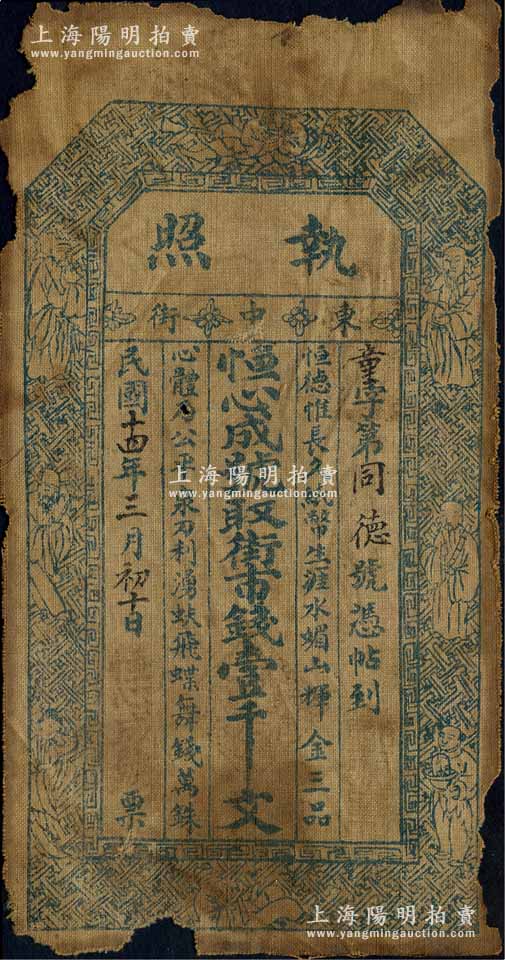 上海陽明拍賣
www.yangmingauction.com
執照
東中街
童字第同德號憑帖到
恒德惟長久 幣生涯水媚山輝金三品
恒心成號取街市錢壹千文
心體 公平 刀利湧蚨飛蝶舞錢萬銖
民國十四年三月初十日 票
上海陽明拍賣
www.yangmingauction.com
上海陽明拍賣
www.yangmingauction.com